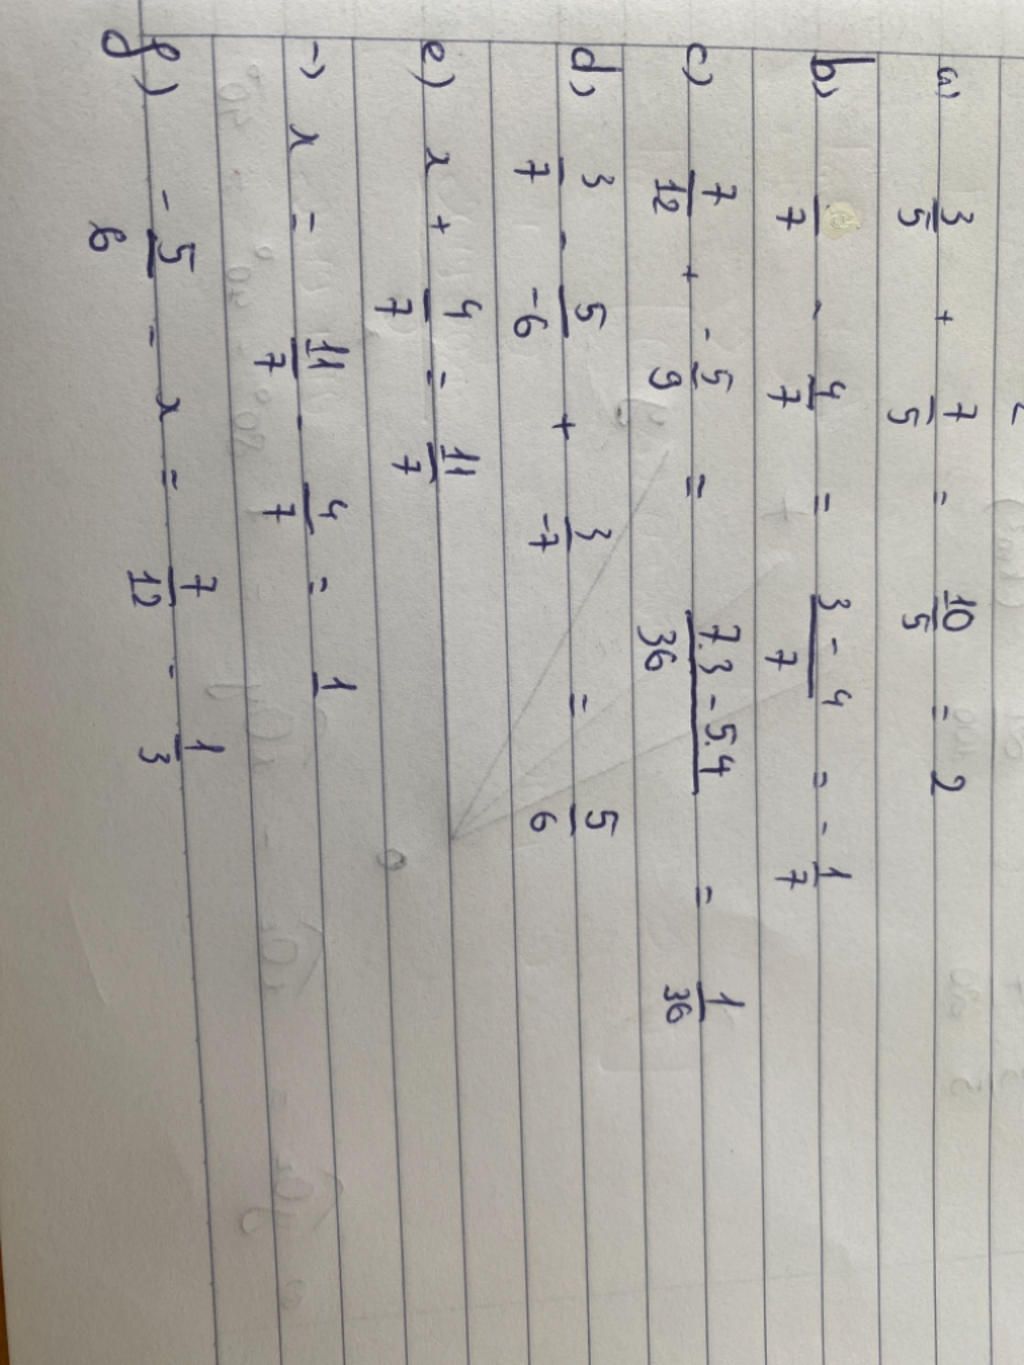 a) 3/5 + 7/5 = 10/5 = 2
b) /7 - 4/7 = 3-4/7 = -1/7
c) 7/12 + -5/9 = 7.3-5.4/36 = 1/36
d) 3/7 - 5/-6 + 3/-7 = 5/6
e) x + 4/7 = 11/7
-) x = 11/7 - 4/7 = 1
f) -5/6 - x = 7/12 - 1/3